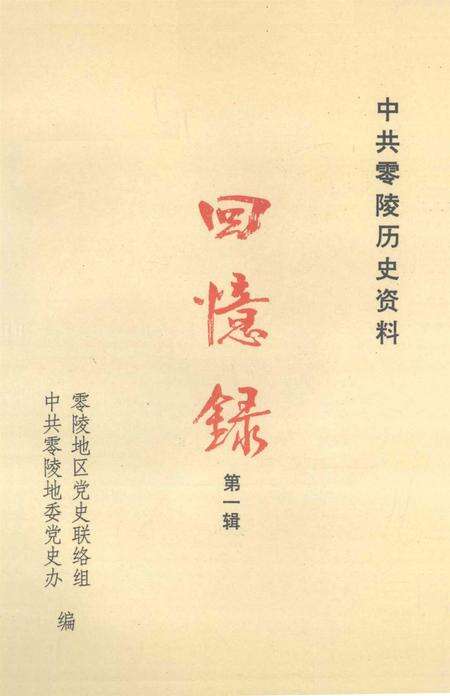 中共零陵历史资料
回憶録
第一辑
零陵地区党史联络组
中共零陵地委党史办
编